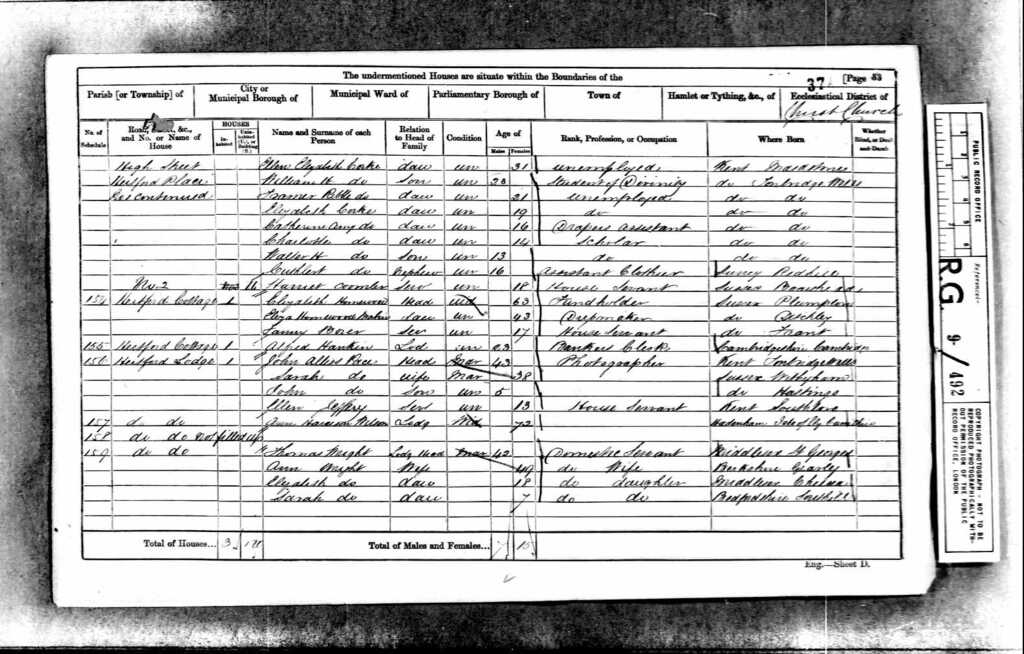 The undermentioned Houses are situate within the Boundaries of the
37
[Page 53
Parish [or Township] of
City or Municipal Borough of
Municipal Ward of
Parliamentary Borough of
Town of
Hamlet or Tything, &c., of
Ecclesiastical District of
Christ Church
No. of Schedule
Road, &c., and No. or Name of House
HOUSES
Inhabited
Uninhabited (U.), or Building (B.)
Name and Surname of each Person
Relation to Head of Family
Condition
Age of
Males
Females
Rank, Profession, or Occupation
Where Born
Whether Blind, or Deaf-and-Dumb
High Street Ellen Elizabeth Corke daur un 31 unemployed Kent Maidstone
Hertford Place William H do Son un 23 Student of Divinity do Tonbridge Wells
do daur un 21 unemployed do do
Elizabeth Corke daur un 19 do do do
Catherine Amy do daur un 16 Drapers assistant do do
Charlotte do daur un 14 Scholar do do
Walter H do Son un 13 do do do
Cuthbert do Nephew un 16 assistant Clothier Surrey Redhill
No. 2 Harriet Serv un 18 House Servant Sussex
154 Hertford Cottage 1 Elizabeth Head 63 Fundholder Sussex Plumpton
daur un 43 do
Fanny Boxer Ser un 17 House Servant do Frant
155 Hertford Cottage 1 Alfred Hankin Lod un 23 Bankers Clerk Cambridgeshire
156 Hertford Lodge 1 John Pace Head Mar 43 Photographer Kent Tonbridge Wells
Sarah do wife Mar 38 Sussex Withyham
John do Son un 5 do Hastings
Ellen Jeffrey Serv un 13 House Servant Kent
157 do do Ann Wilson Lodg 72
158 do do not filled up
159 do do Thomas Wright Lodg Head Mar 42 Domestic Servant Middlesex St Georges
Ann Wright Wife 49 do Wife Berkshire
Elizabeth do daur 18 do daughter Middlesex Chelsea
Sarah do daur 7 do do Bedfordshire
Total of Houses... 3
Total of Males and Females... 7 15
Eng.—Sheet D.
PUBLIC RECORD OFFICE
Reference:-
R.G. 9/492
COPYRIGHT PHOTOGRAPH - NOT TO BE REPRODUCED PHOTOGRAPHICALLY WITHOUT PERMISSION OF THE PUBLIC RECORD OFFICE, LONDON